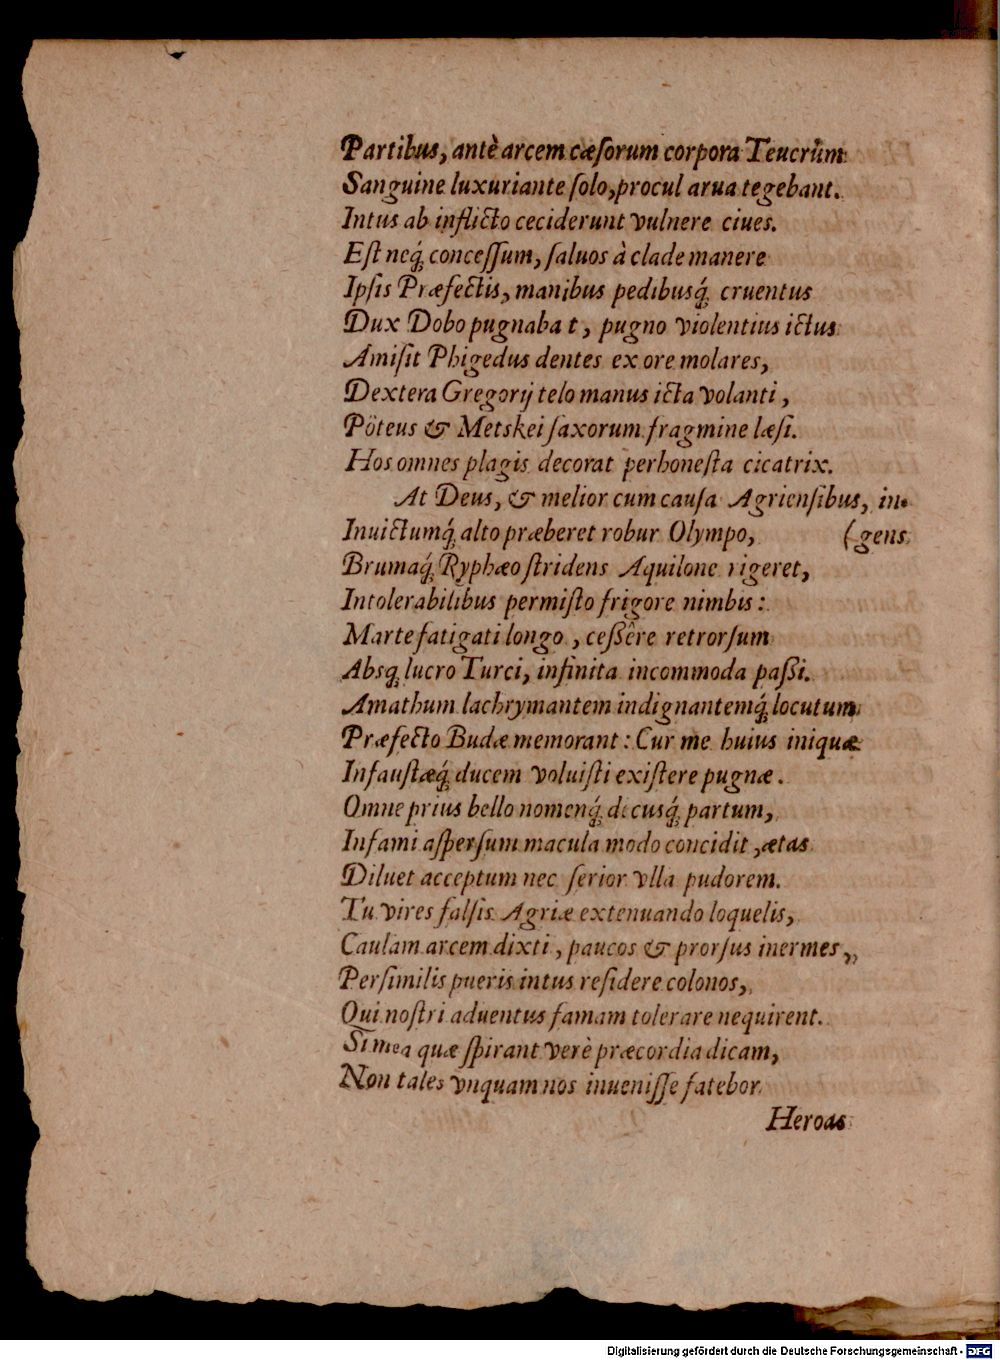 Partibus, antè arcem cæſorum corpora Teucrûm
Sanguine luxuriante ſolo, procul arua tegebant.
Intus ab inflicto ceciderunt vulnere ciues.
Eſt neq́; conceſſum, ſaluos à clade manere
Ipſis Præfectis, manibus pedibusq́; cruentus
Dux Dobo pugnaba t, pugno violentius ictus
Amiſit Phigedus dentes ex ore molares,
Dextera Gregorij telo manus icta volanti,
Pöteus & Metskei ſaxorum fragmine læſi.
Hos omnes plagis decorat perhoneſta cicatrix.
At Deus, & melior cum cauſa Agrienſibus, in-
Inuictumq́; alto præberet robur Olympo, (gens
Brumaq́; Ryphæo ſtridens Aquilone rigeret,
Intolerabilibus permiſto frigore nimbis:
Marte fatigati longo, ceßêre retrorſum
Absq; lucro Turci, infinita incommoda paßi.
Amathum lachrymantem indignantemq́; locutum
Præfecto Budæ memorant: Cur me huius iniquæ
Infauſtæq́; ducem voluiſti exiſtere pugnæ.
Omne prius bello nomenq́; decusq́; partum,
Infami aſperſum macula modo concidit, ætas
Diluet acceptum nec ſerior vlla pudorem.
Tu vires falſis Agriæ extenuando loquelis,
Caulam arcem dixti, paucos & prorſus inermes,
Perſimilis pueris intus reſidere colonos,
Qui noſtri aduentus famam tolerare nequirent.
Si mea quæ ſpirant verè præcordia dicam,
Non tales vnquam nos inueniſſe fatebor
Heroas
Digitalisierung gefördert durch die Deutsche Forschungsgemeinschaft - DFG